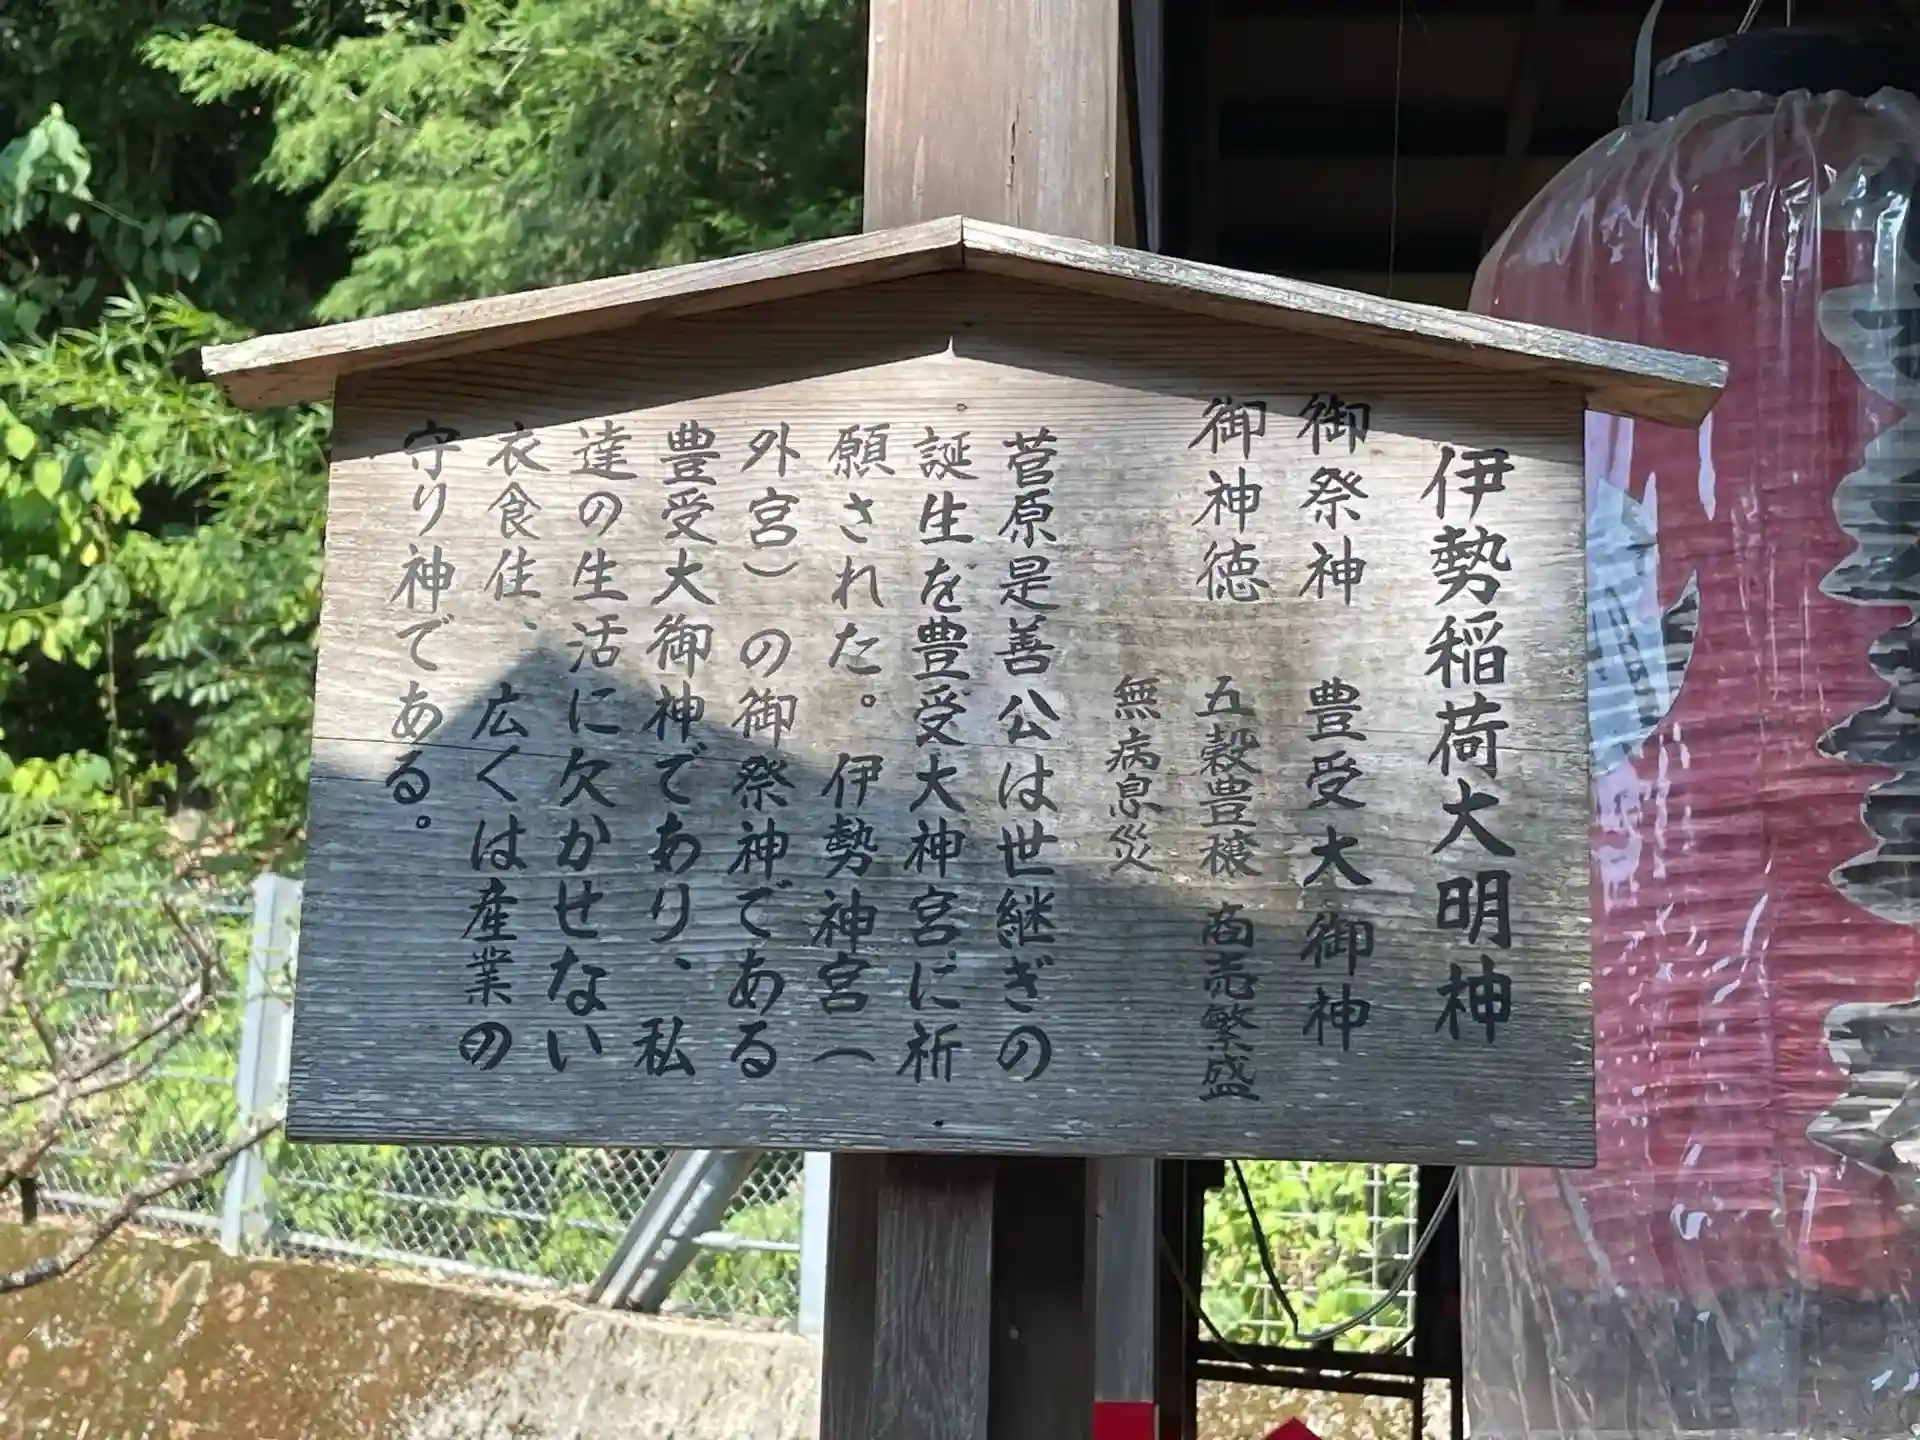 伊勢稲荷大明神
御祭神　豊受大御神
御神徳　五穀豊穣　商売繁盛
無病息災
菅原是善公は世継ぎの
誕生を豊受大神宮に祈
願された。伊勢神宮（
外宮）の御祭神である
豊受大御神であり、私
達の生活に欠かせない
衣食住、広くは産業の
守り神である。